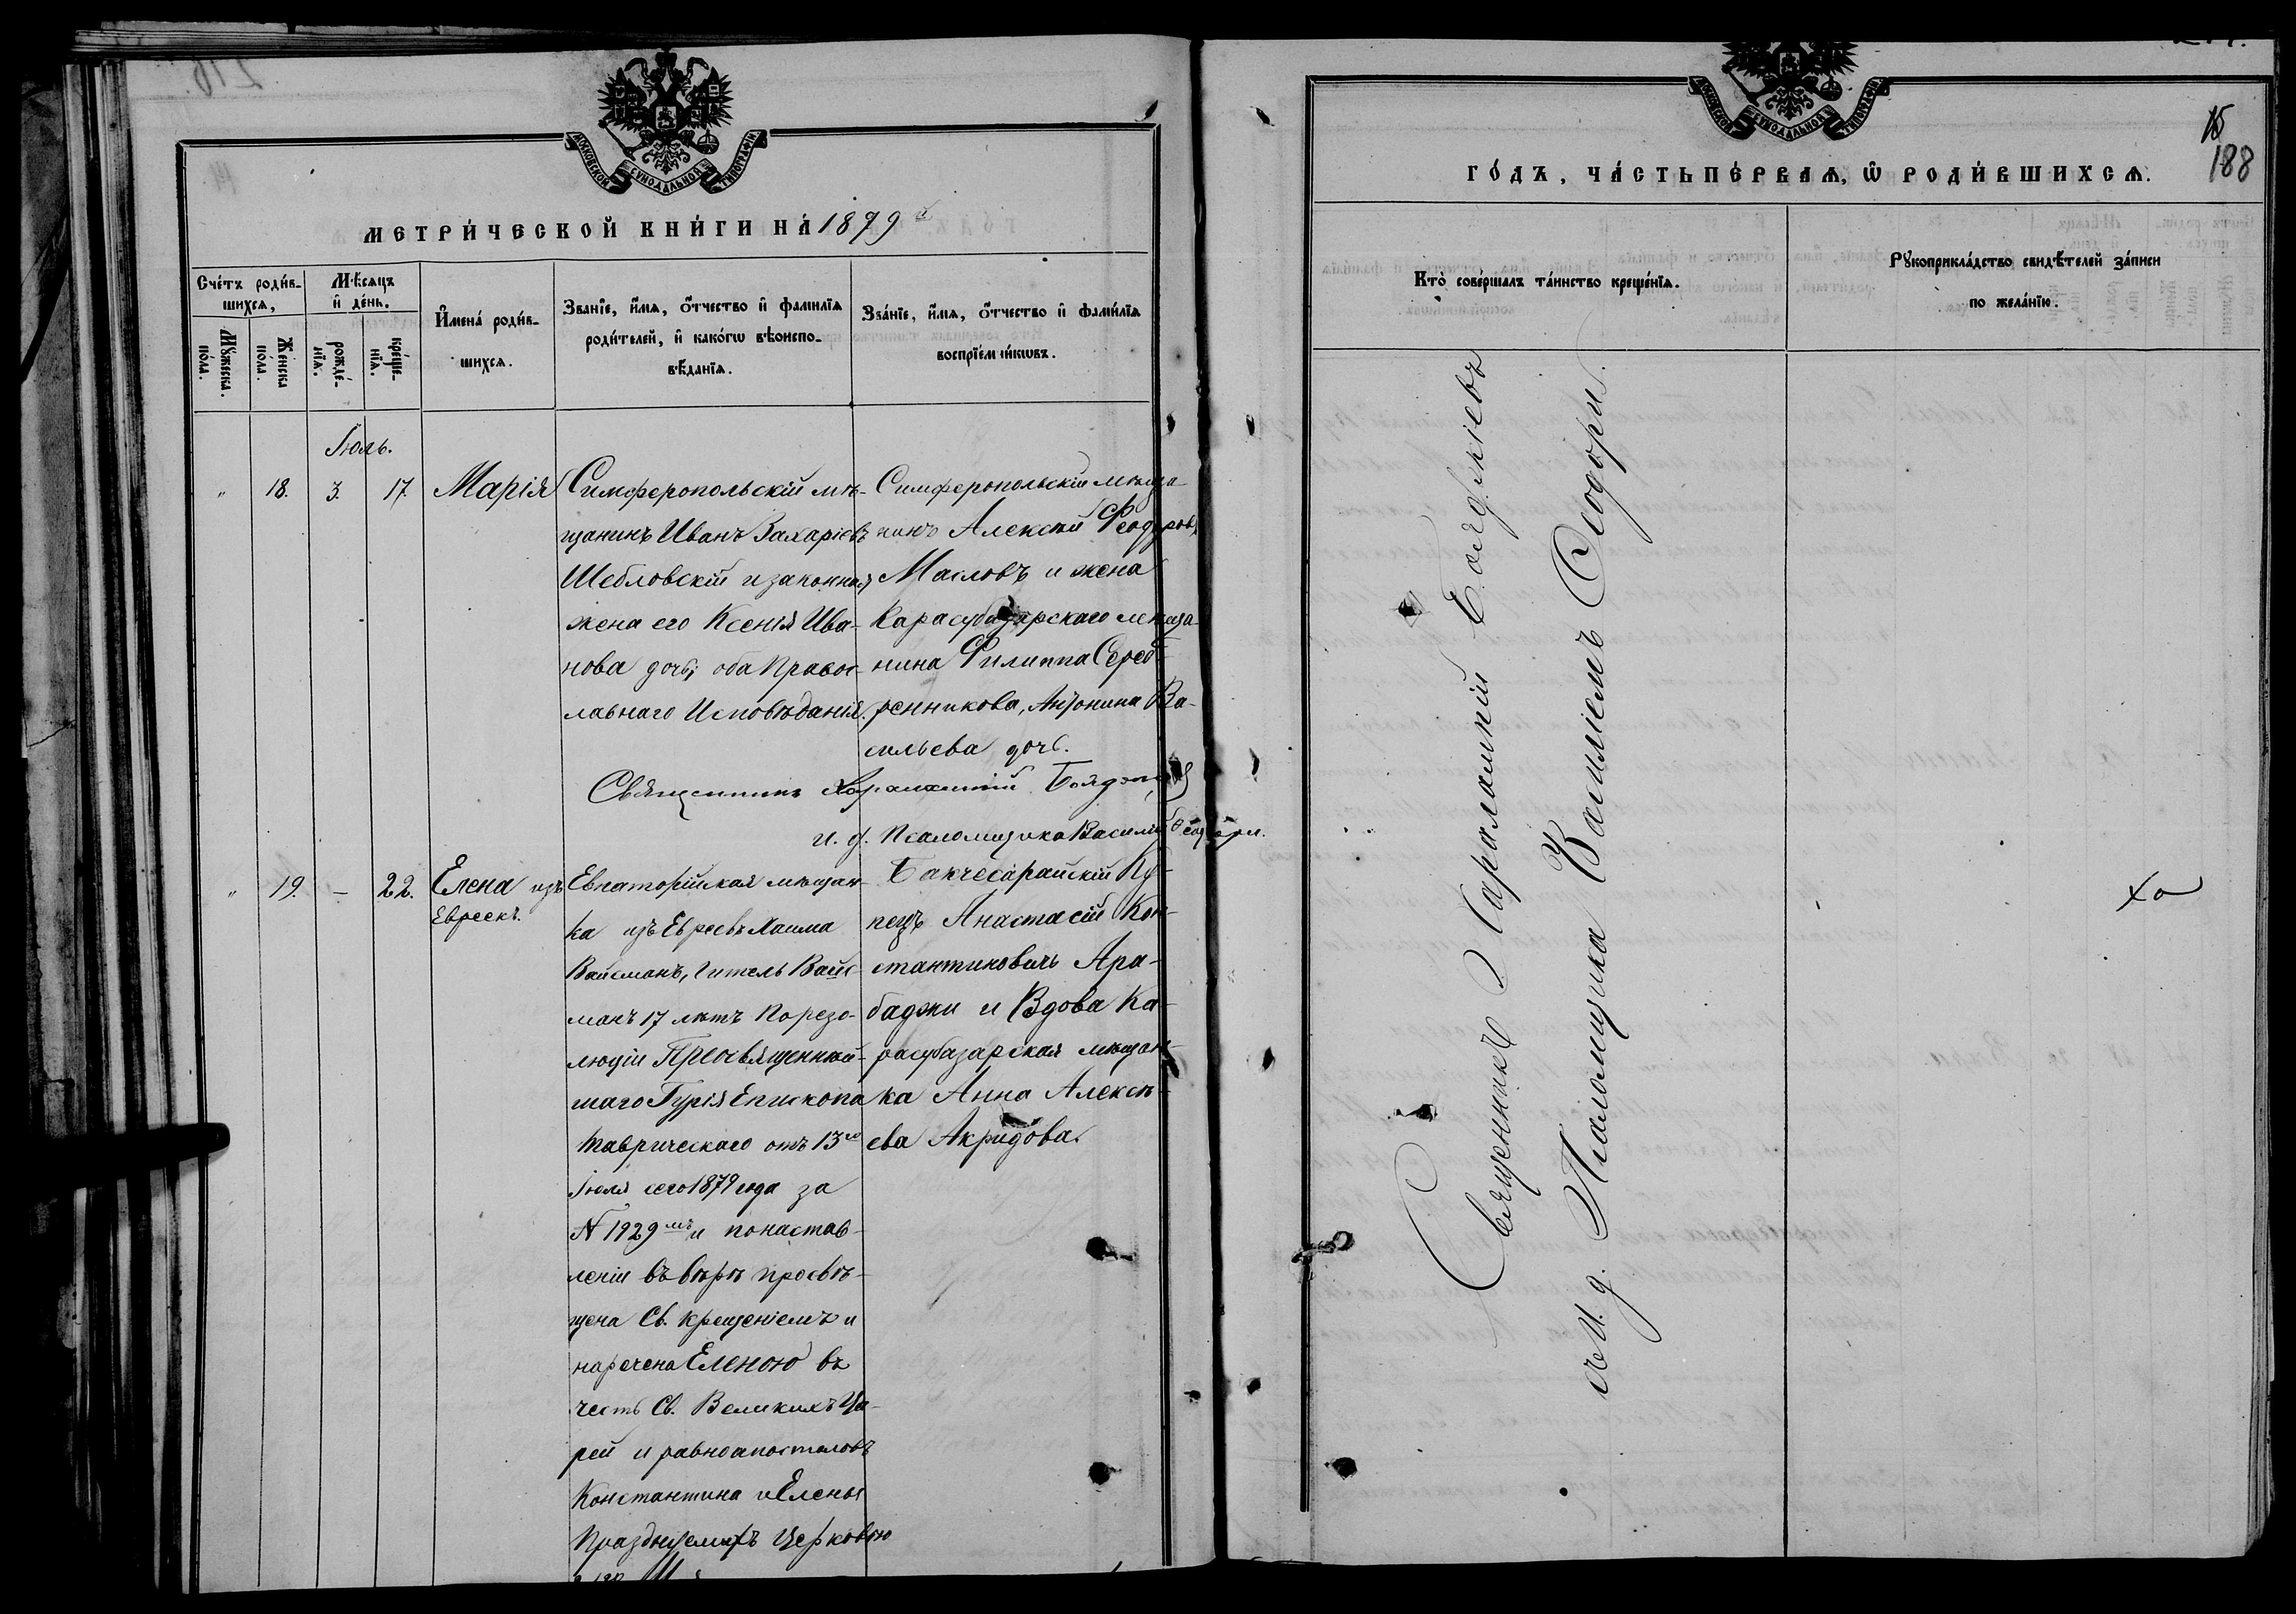 МОСКОВСКОЙ СѴНОДАЛЬНОЙ ТИПОГРАФІИ
МЕТРИ́ЧЕСКОЙ КНИ́ГИ НА́ 1879 й
Сче́тъ роди́в-
шихсѧ,
Мꙋ́жеска.
по́ла.
Же́нска
по́ла.
Мѣ́сѧцъ
и҆ де́нь.
рожде́-
нїѧ.
креще́-
нїѧ.
И҆мена́ роди́в-
шихсѧ.
Зва́нїе, и҆́мѧ, ѻ҆́тчество и҆ фами́лїѧ
роди́телей, и҆ како́гѡ вѣ̀роиспо-
вѣ́данїѧ.
Зва́нїе, и҆́мѧ, ѻ҆́тчество и҆ фами́лїѧ
воспрїе́мникѡвъ.
Іюль.
" 18. 3. 17. Марія
Симферопольскій мѣ-
щанинъ Иванъ Захаріевъ
Шебловскій и законная
жена его Ксенія Ива-
нова дочь; оба Правос-
лавнаго Исповѣданія.
Симферопольскій мѣща-
нинъ Алексѣй Феодоровъ
Масловъ и жена
Карасубазарскаго мѣща-
нина Филиппа Сереб-
ренникова, Антонина Ва-
сильева дочь.
Священникъ Харалампій Бояджіевъ
и. д. Псаломщика Василій Ѳеодори.
" 19. – 22. Елена изъ
Евреекъ.
Евпаторійская мѣщан-
ка изъ Евреевъ Хаима
Вайсманъ, Гитель Вайс-
манъ 17 лѣтъ По резо-
люціи Преосвященнѣй-
шаго Гурія Епископа
Таврическаго отъ 13го
Іюля сего 1879 года за
N 1929мъ и по настав-
леніи въ вѣрѣ просвѣ-
щена Св. крещеніемъ и
наречена Еленою въ
честь Св. Великихъ Ца-
рей и равноапостоловъ
Константина и Елены
Празднуемыхъ Церковью
Бакчесарайскій Ку-
пецъ Анастасій Кон-
стантиновичъ Ара-
баджи и Вдова Ка-
расубазарская мѣщан-
ка Анна Алексѣ-
ева Акридова.
МОСКОВСКОЙ СѴНОДАЛЬНОЙ ТИПОГРАФІИ
15
188
ГО́ДЪ, ЧА́СТЬ ПЕ́РВАѦ, Ѡ҆ РОДИ́ВШИХСѦ.
Кто̀ соверша́лъ та́инство креще́нїѧ.
Рꙋкоприкла́дство свидѣ́телей за́писи
по жела́нїю.
Священникъ Харалампій Бояджіевъ
съ и. д. Псаломщика Василіемъ Ѳеодори.